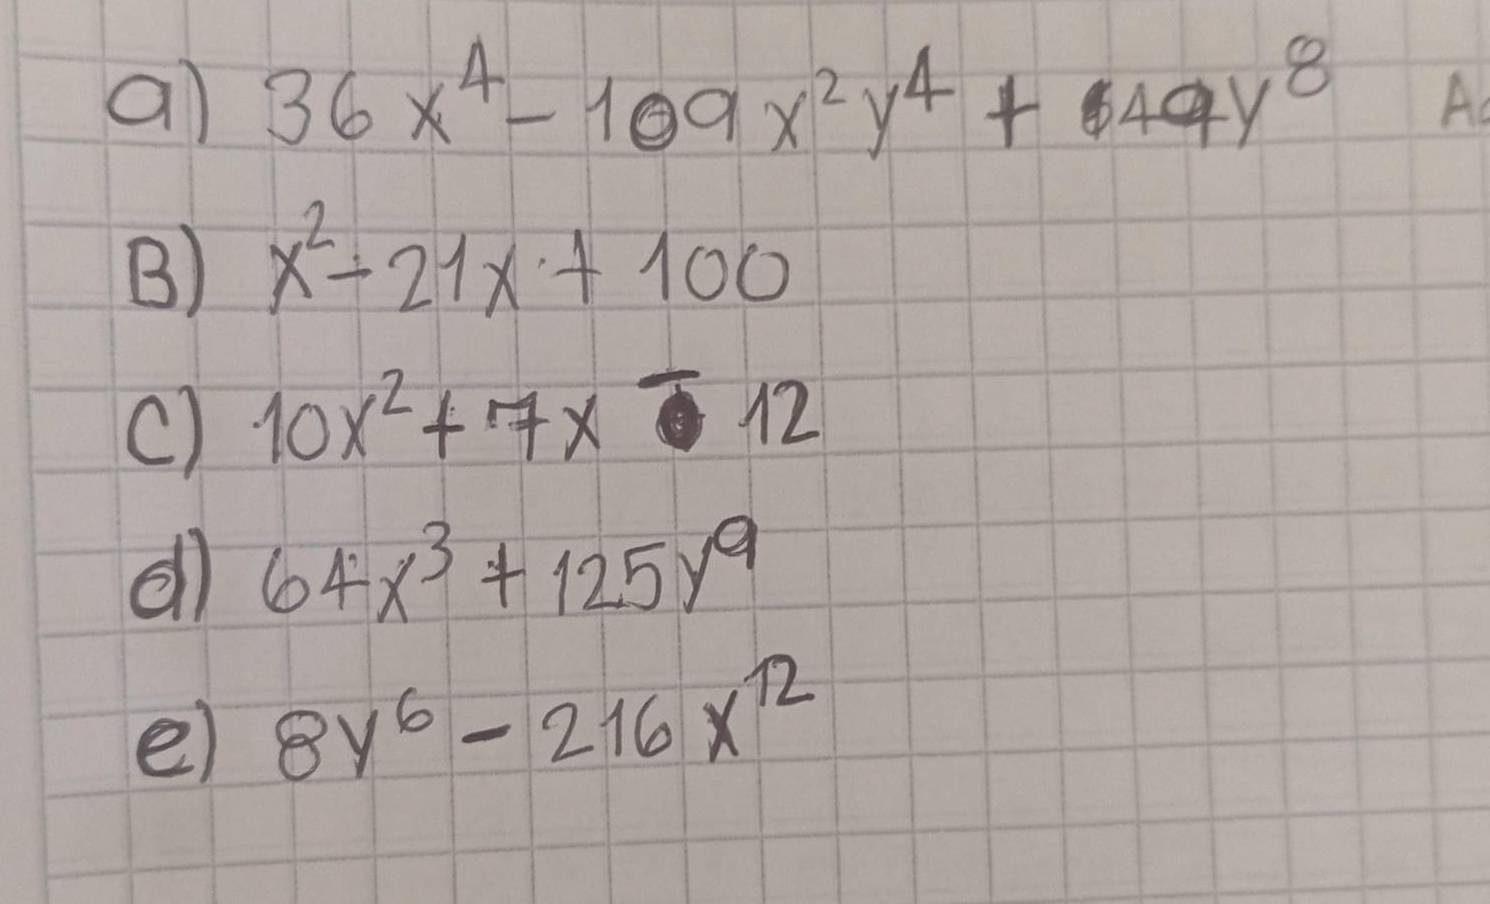 a) 36x⁴ - 109x²y⁴ + 49y⁸
B) x² - 21x + 100
C) 10x² + 7x - 12
d) 64x³ + 125y⁹
e) 8y⁶ - 216x¹²